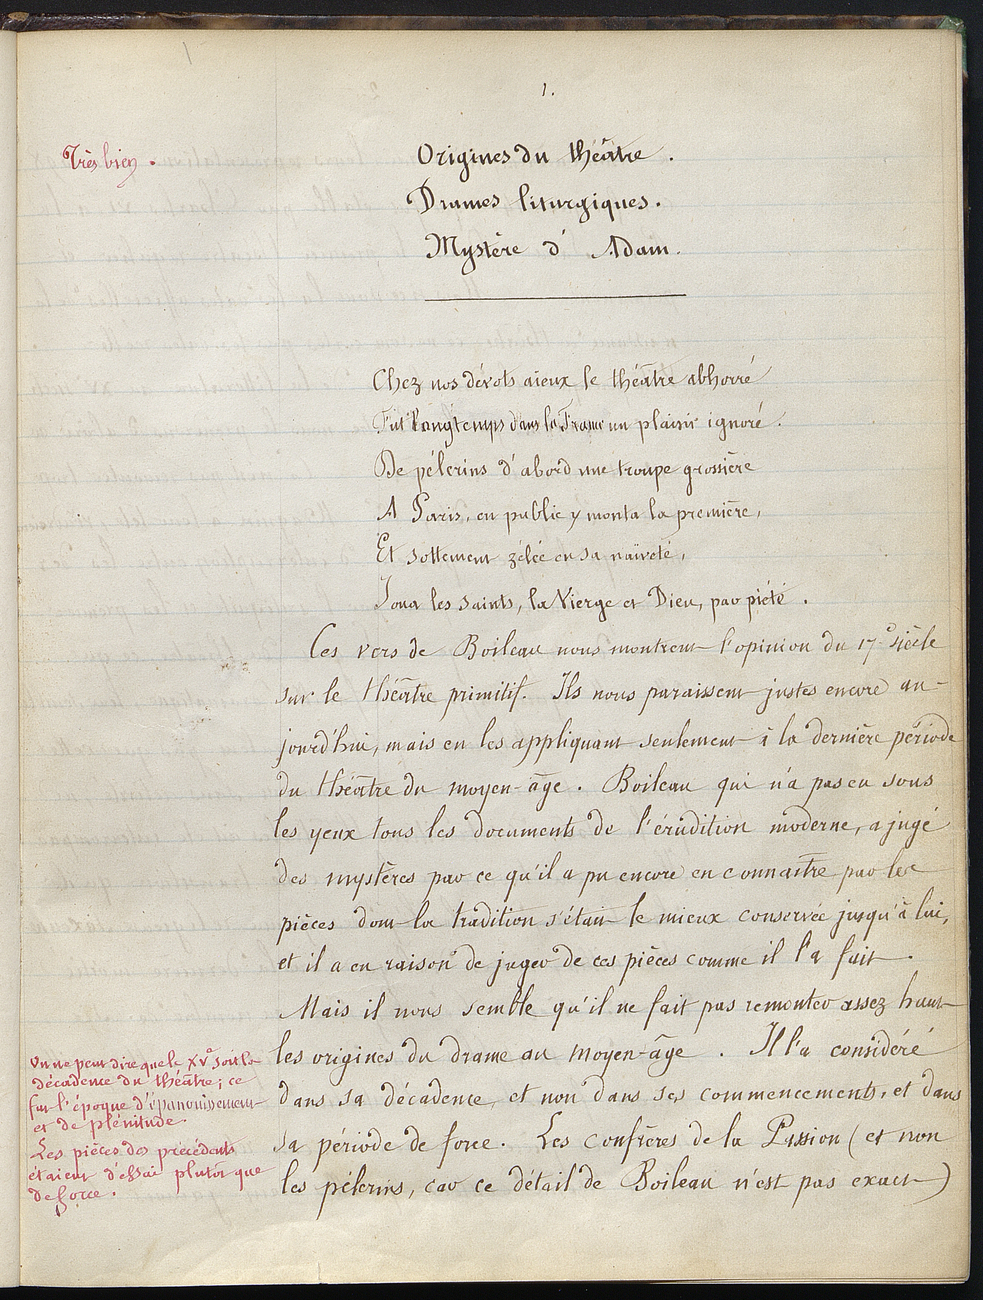 1.
Très bien.
Origines du théâtre.
Drames liturgiques.
Mystère d'Adam.
Chez nos dévots aïeux le théâtre abhorré
Fut longtemps dans la France un plaisir ignoré.
De pélerins d'abord une troupe grossière
A Paris, en public y monta la première,
Et sottement zélée en sa naïveté,
Joua les saints, la Vierge et Dieu, par piété.
Ces vers de Boileau nous montrent l'opinion du 17e siècle
sur le théâtre primitif. Ils nous paraissent justes encore au-
jourd'hui, mais en les appliquant seulement à la dernière période
du théâtre du moyen-âge. Boileau qui n'a pas eu sous
les yeux tous les documents de l'érudition moderne, a jugé
des mystères par ce qu'il a pu encore en connaître par les
pièces dont la tradition s'était le mieux conservée jusqu'à lui,
et il a eu raison de juger de ces pièces comme il l'a fait.
Mais il nous semble qu'il ne fait pas remonter assez haut
les origines du drame au moyen-âge. Il l'a considéré
dans sa décadence, et non dans ses commencements, et dans
sa période de force. Les confrères de la Passion (et non
les pélerins, car ce détail de Boileau n'est pas exact)
On ne peut dire que le XVe soit la
décadence du théâtre; ce
fut l'époque d'épanouissement
et de plénitude.
Les pièces des précédents
étaient d'essai plutôt que
de force.